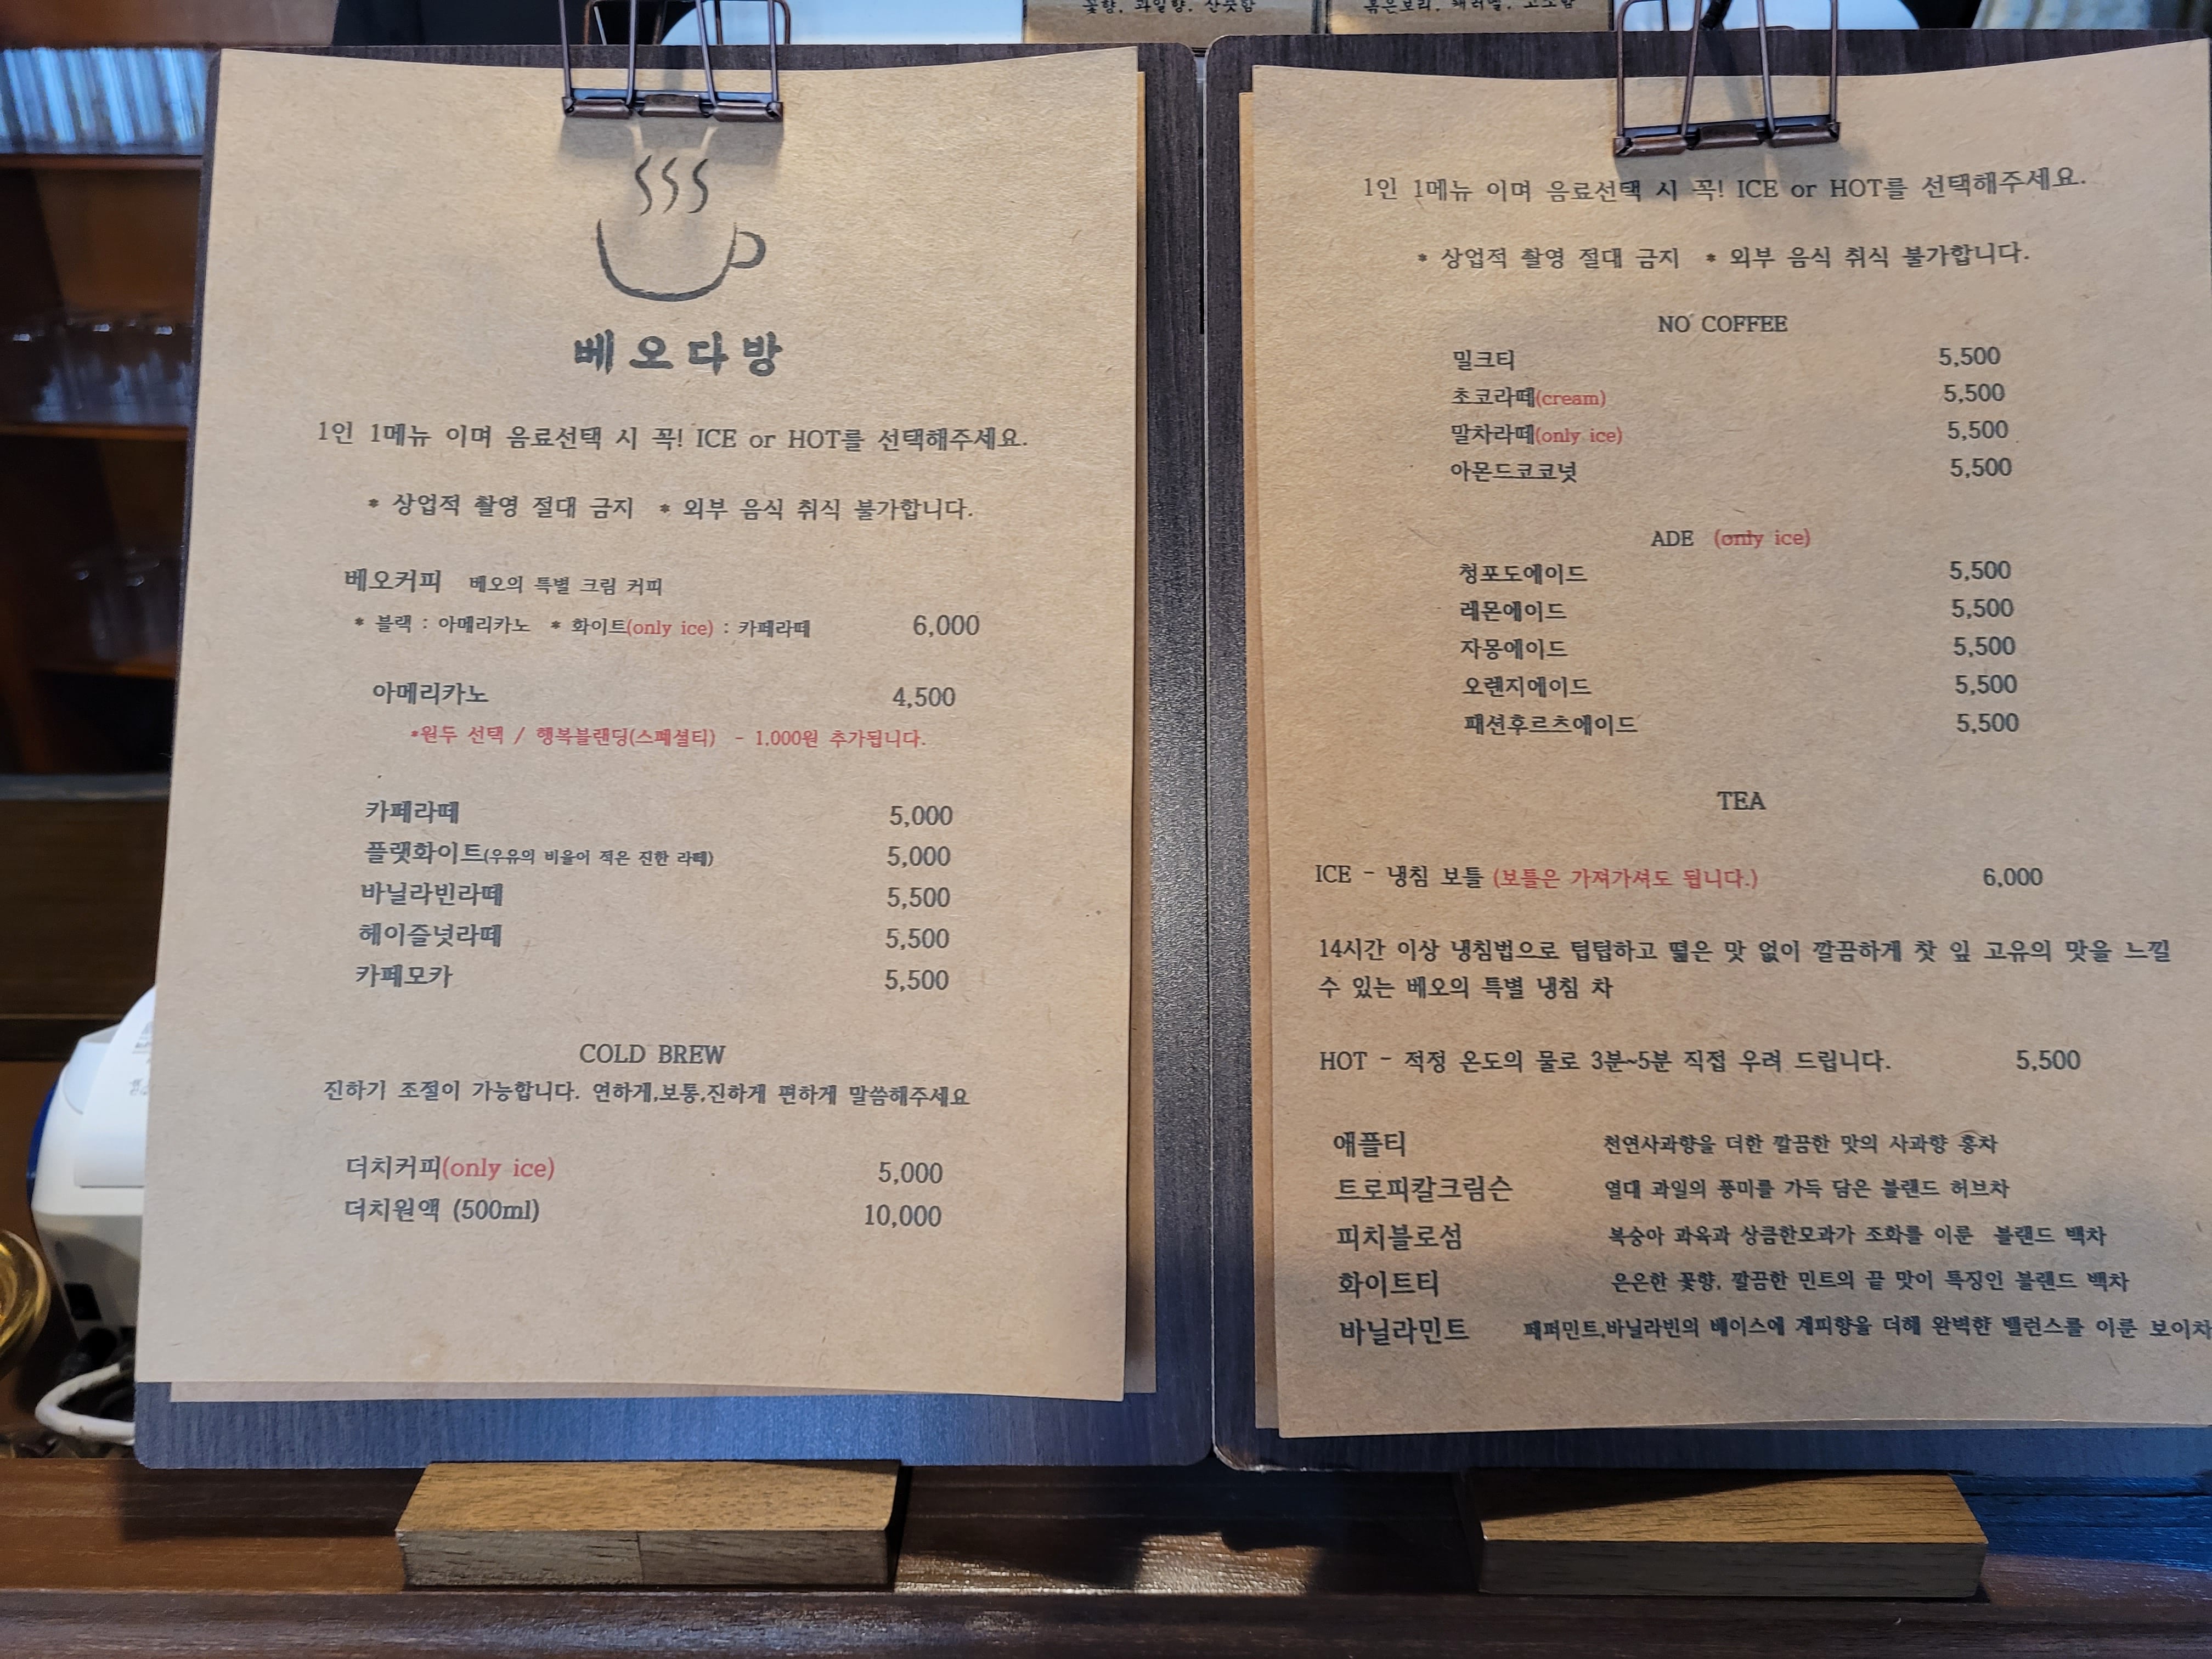 꽃향, 과일향, 산뜻함
볶은보리, 캐러멜, 고소함
베오다방
1인 1메뉴 이며 음료선택 시 꼭! ICE or HOT를 선택해주세요.
* 상업적 촬영 절대 금지 * 외부 음식 취식 불가합니다.
베오커피 베오의 특별 크림 커피
* 블랙 : 아메리카노 * 화이트(only ice) : 카페라떼 6,000
아메리카노 4,500
*원두 선택 / 행복블랜딩(스페셜티) - 1,000원 추가됩니다.
카페라떼 5,000
플랫화이트(우유의 비율이 적은 진한 라떼) 5,000
바닐라빈라떼 5,500
헤이즐넛라떼 5,500
카페모카 5,500
COLD BREW
진하기 조절이 가능합니다. 연하게,보통,진하게 편하게 말씀해주세요
더치커피(only ice) 5,000
더치원액 (500ml) 10,000
1인 1메뉴 이며 음료선택 시 꼭! ICE or HOT를 선택해주세요.
* 상업적 촬영 절대 금지 * 외부 음식 취식 불가합니다.
NO COFFEE
밀크티 5,500
초코라떼(cream) 5,500
말차라떼(only ice) 5,500
아몬드코코넛 5,500
ADE (only ice)
청포도에이드 5,500
레몬에이드 5,500
자몽에이드 5,500
오렌지에이드 5,500
패션후르츠에이드 5,500
TEA
ICE - 냉침 보틀 (보틀은 가져가셔도 됩니다.) 6,000
14시간 이상 냉침법으로 텁텁하고 떫은 맛 없이 깔끔하게 찻 잎 고유의 맛을 느낄
수 있는 베오의 특별 냉침 차
HOT - 적정 온도의 물로 3분~5분 직접 우려 드립니다. 5,500
애플티 천연사과향을 더한 깔끔한 맛의 사과향 홍차
트로피칼크림슨 열대 과일의 풍미를 가득 담은 블랜드 허브차
피치블로섬 복숭아 과육과 상큼한모과가 조화를 이룬 블랜드 백차
화이트티 은은한 꽃향, 깔끔한 민트의 끝 맛이 특징인 블랜드 백차
바닐라민트 페퍼민트,바닐라빈의 베이스에 계피향을 더해 완벽한 밸런스를 이룬 보이차